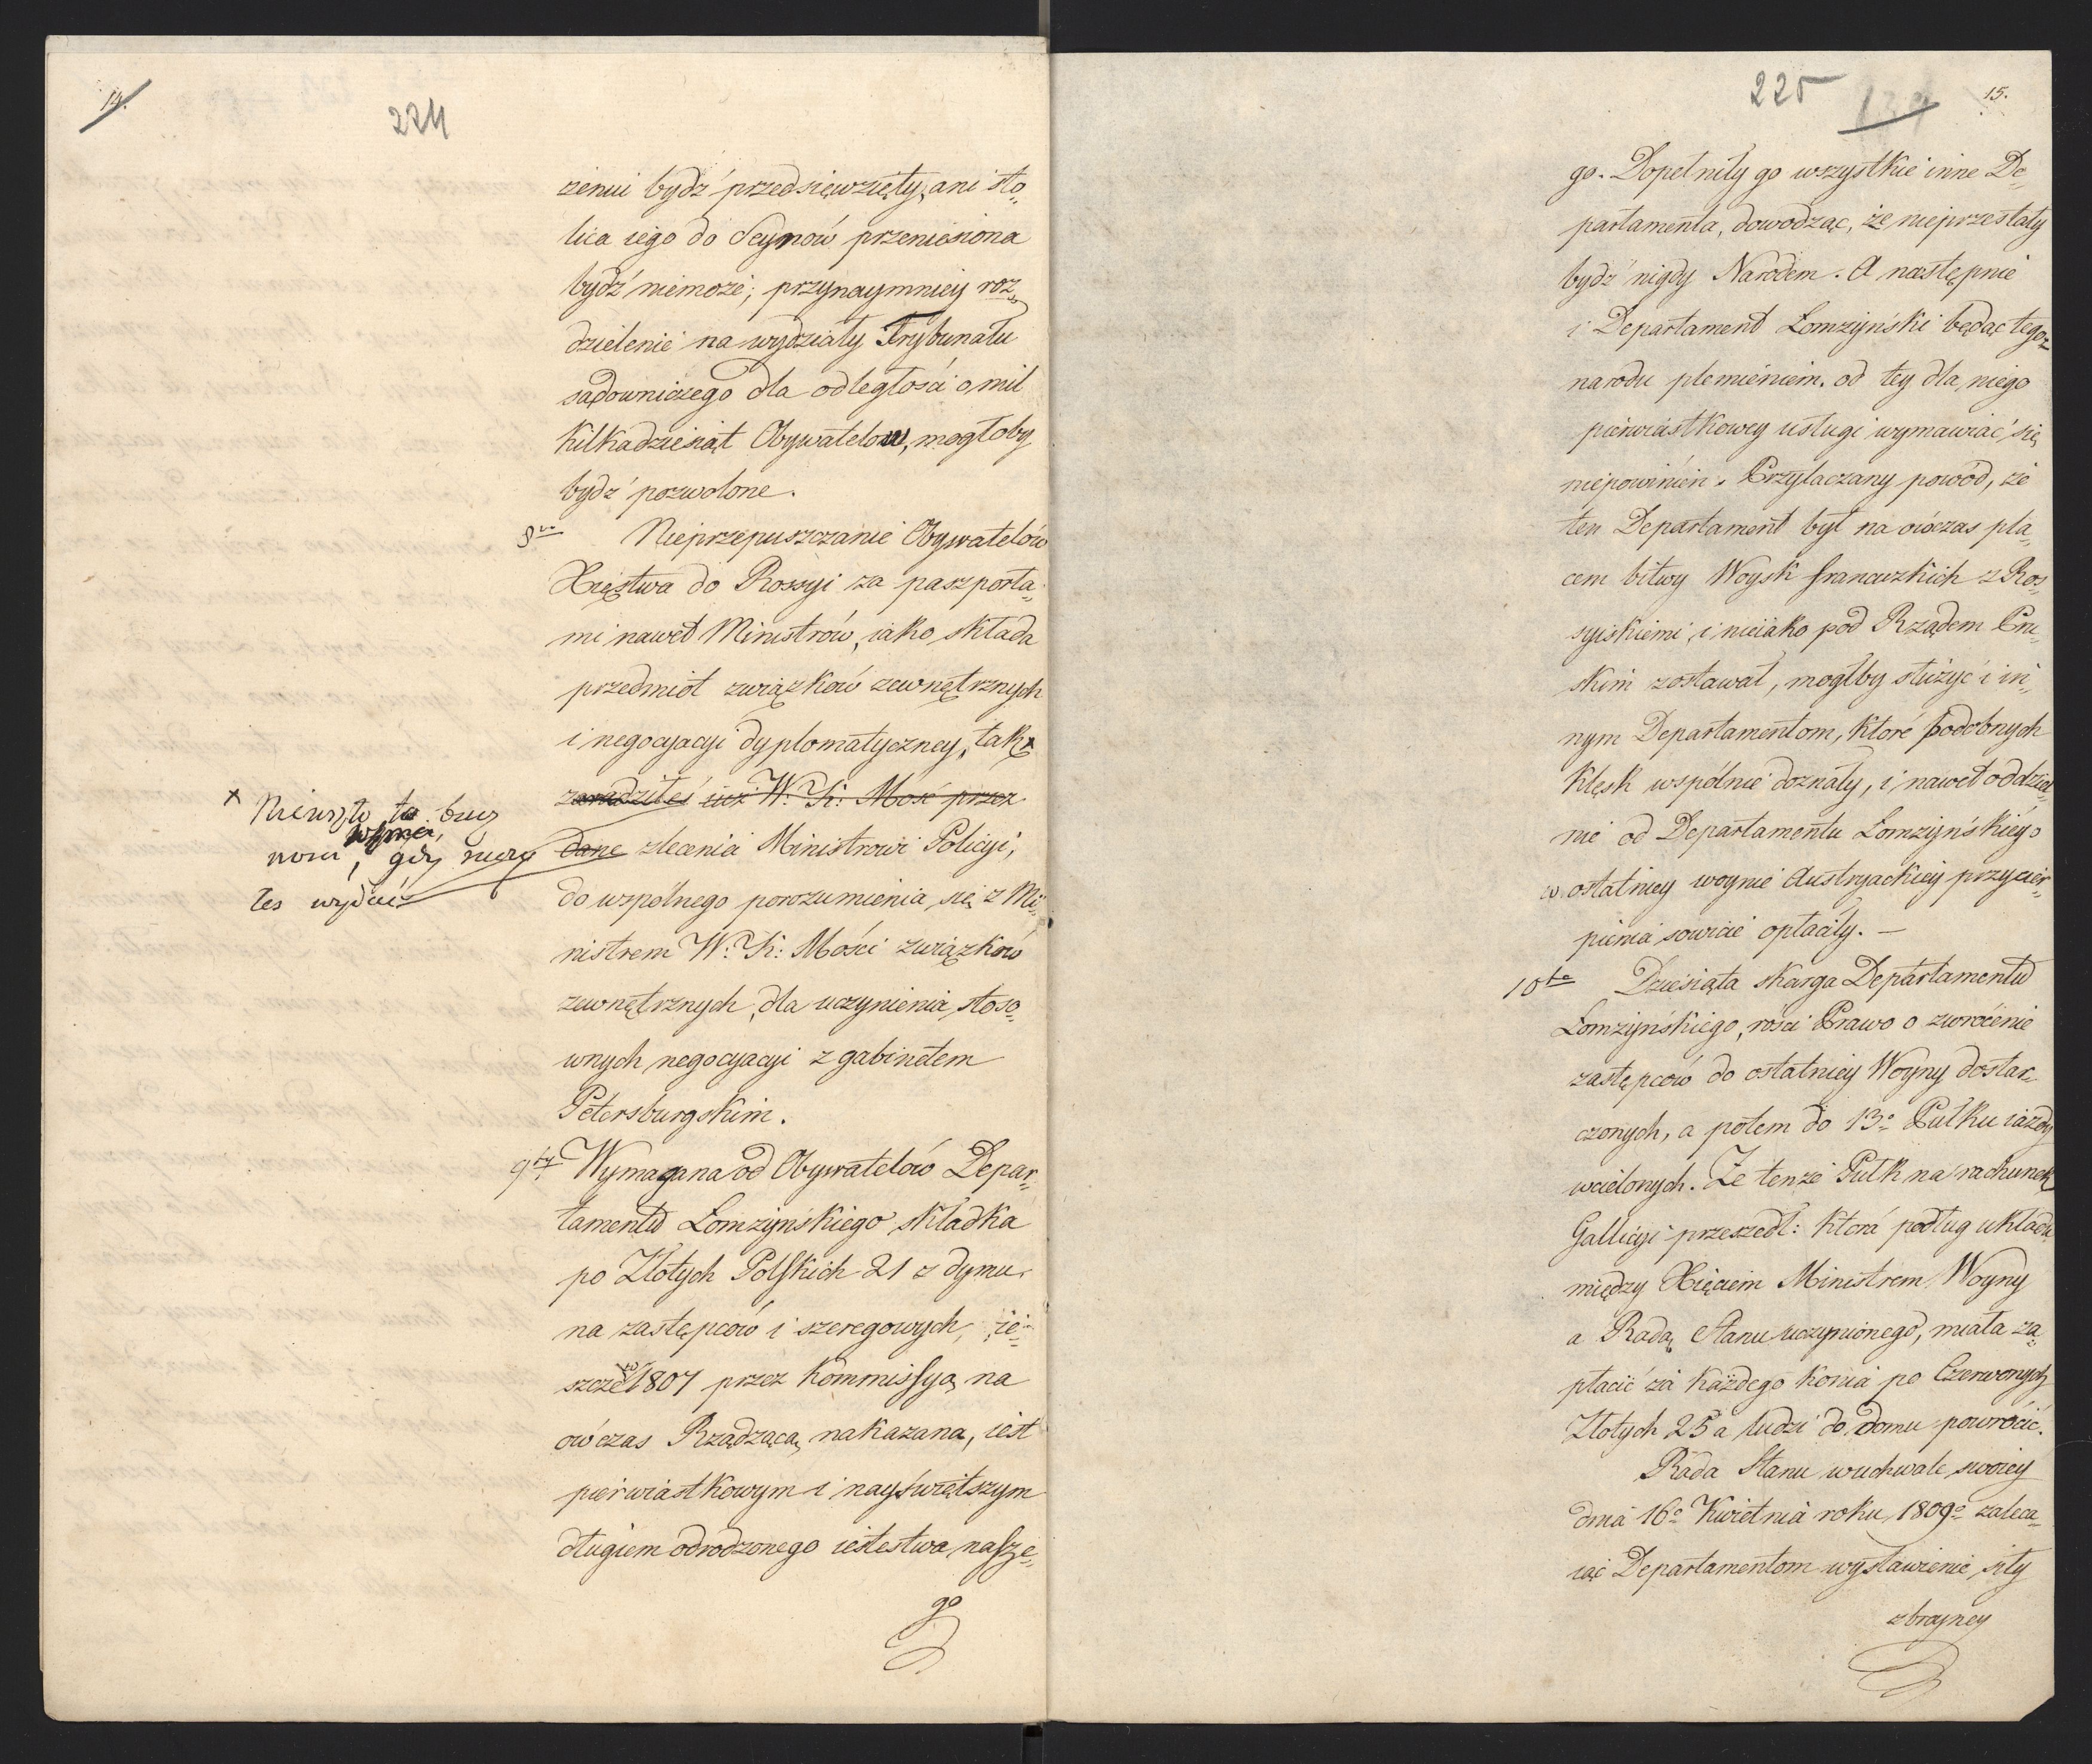 14.
224
zenui bydź przedsięwzięty, ani sto„
lica iego do Seynow przeniesiona
bydź niemoże; przynaymniey roz„
dzielenie na wydziały Trybunału
sądowniczego dla odległości o mil
kilkadziesiąt Obywatelow, mogłoby
bydź pozwolone.
8vo Nieprzepuszczanie Obywatelów
Xięstwa do Rossyi za paszporta„
mi nawet Ministrów, iako składa
przedmiot związków zewnętrznych
i negocyacyi dyplomatyczney, tak x
zaradziłeś iuż W: K: Mość przez
x Nieuszło to bacz
ności wyszej, gdy raczy
łeś wydać
dane zlecenia Ministrowi Policyi,
do wspólnego porozumienia się z Mi„
nistrem W: K: Mości związków
zewnętrznych, dla uczynienia stoso„
wnych negocyacyi z gabinetem
Petersburgskim.
9ty. Wymagana od Obywatelów Depar„
tamentu Łomżyńskiego składka
po Złotych Polskich 21 z dymu
na zastępców i szeregowych, ie„
szcze w 1807 przez Kommissyą na
ówczas Rządzącą nakazana, iest
pierwiastkowym i nayświętszym
długiem odrodzonego iestestwa nasze„
go
225
139
15.
go. Dopełniły go wszystkie inne De„
partamenta, dowodząc, że nieprzestały
bydź nigdy Narodem. A następnie
i Departament Łomżyński będąc tegoż
narodu plemieniem. od tey dla niego
pierwiastkowey usługi wymawiać się
niepowinien. Przyłaczany powód, że
ten Departament był na ówczas pla„
cem bitwy Woysk francuzkich z Ros„
syiskiemi, i nieiako pod Rządem Pru„
skim zostawał, mogłby służyć i in„
nym Departamentom, które podobnych
klęsk wspólnie doznały, i nawet oddziel„
nie od Departamentu Łomżyńskiego
w ostatniey woynie Austryackiey przycier„
pienia sowicie opłaciły. —
10te Dziesiąta skarga Departamentu
Łomżyńskiego, rości Prawo o zwrócenie
zastępców do ostatniey Woyny dostar„
czonych, a potem do 13o Pułku iazdy
wcielonych. Że tenże Pułk na rachunek
Gallicyi przeszedł: która podług układu
między Xięciem Ministrem Woyny
a Radą Stanu uczynionego, miała za„
płacić za każdego konia po Czerwonych
Złotych 25 a ludzi do domu powrócić.
Rada Stanu w uchwale swoiey
dnia 16o Kwietnia roku 1809o zaleca„
iąc Departamentom wystawienie siły
zbroyney